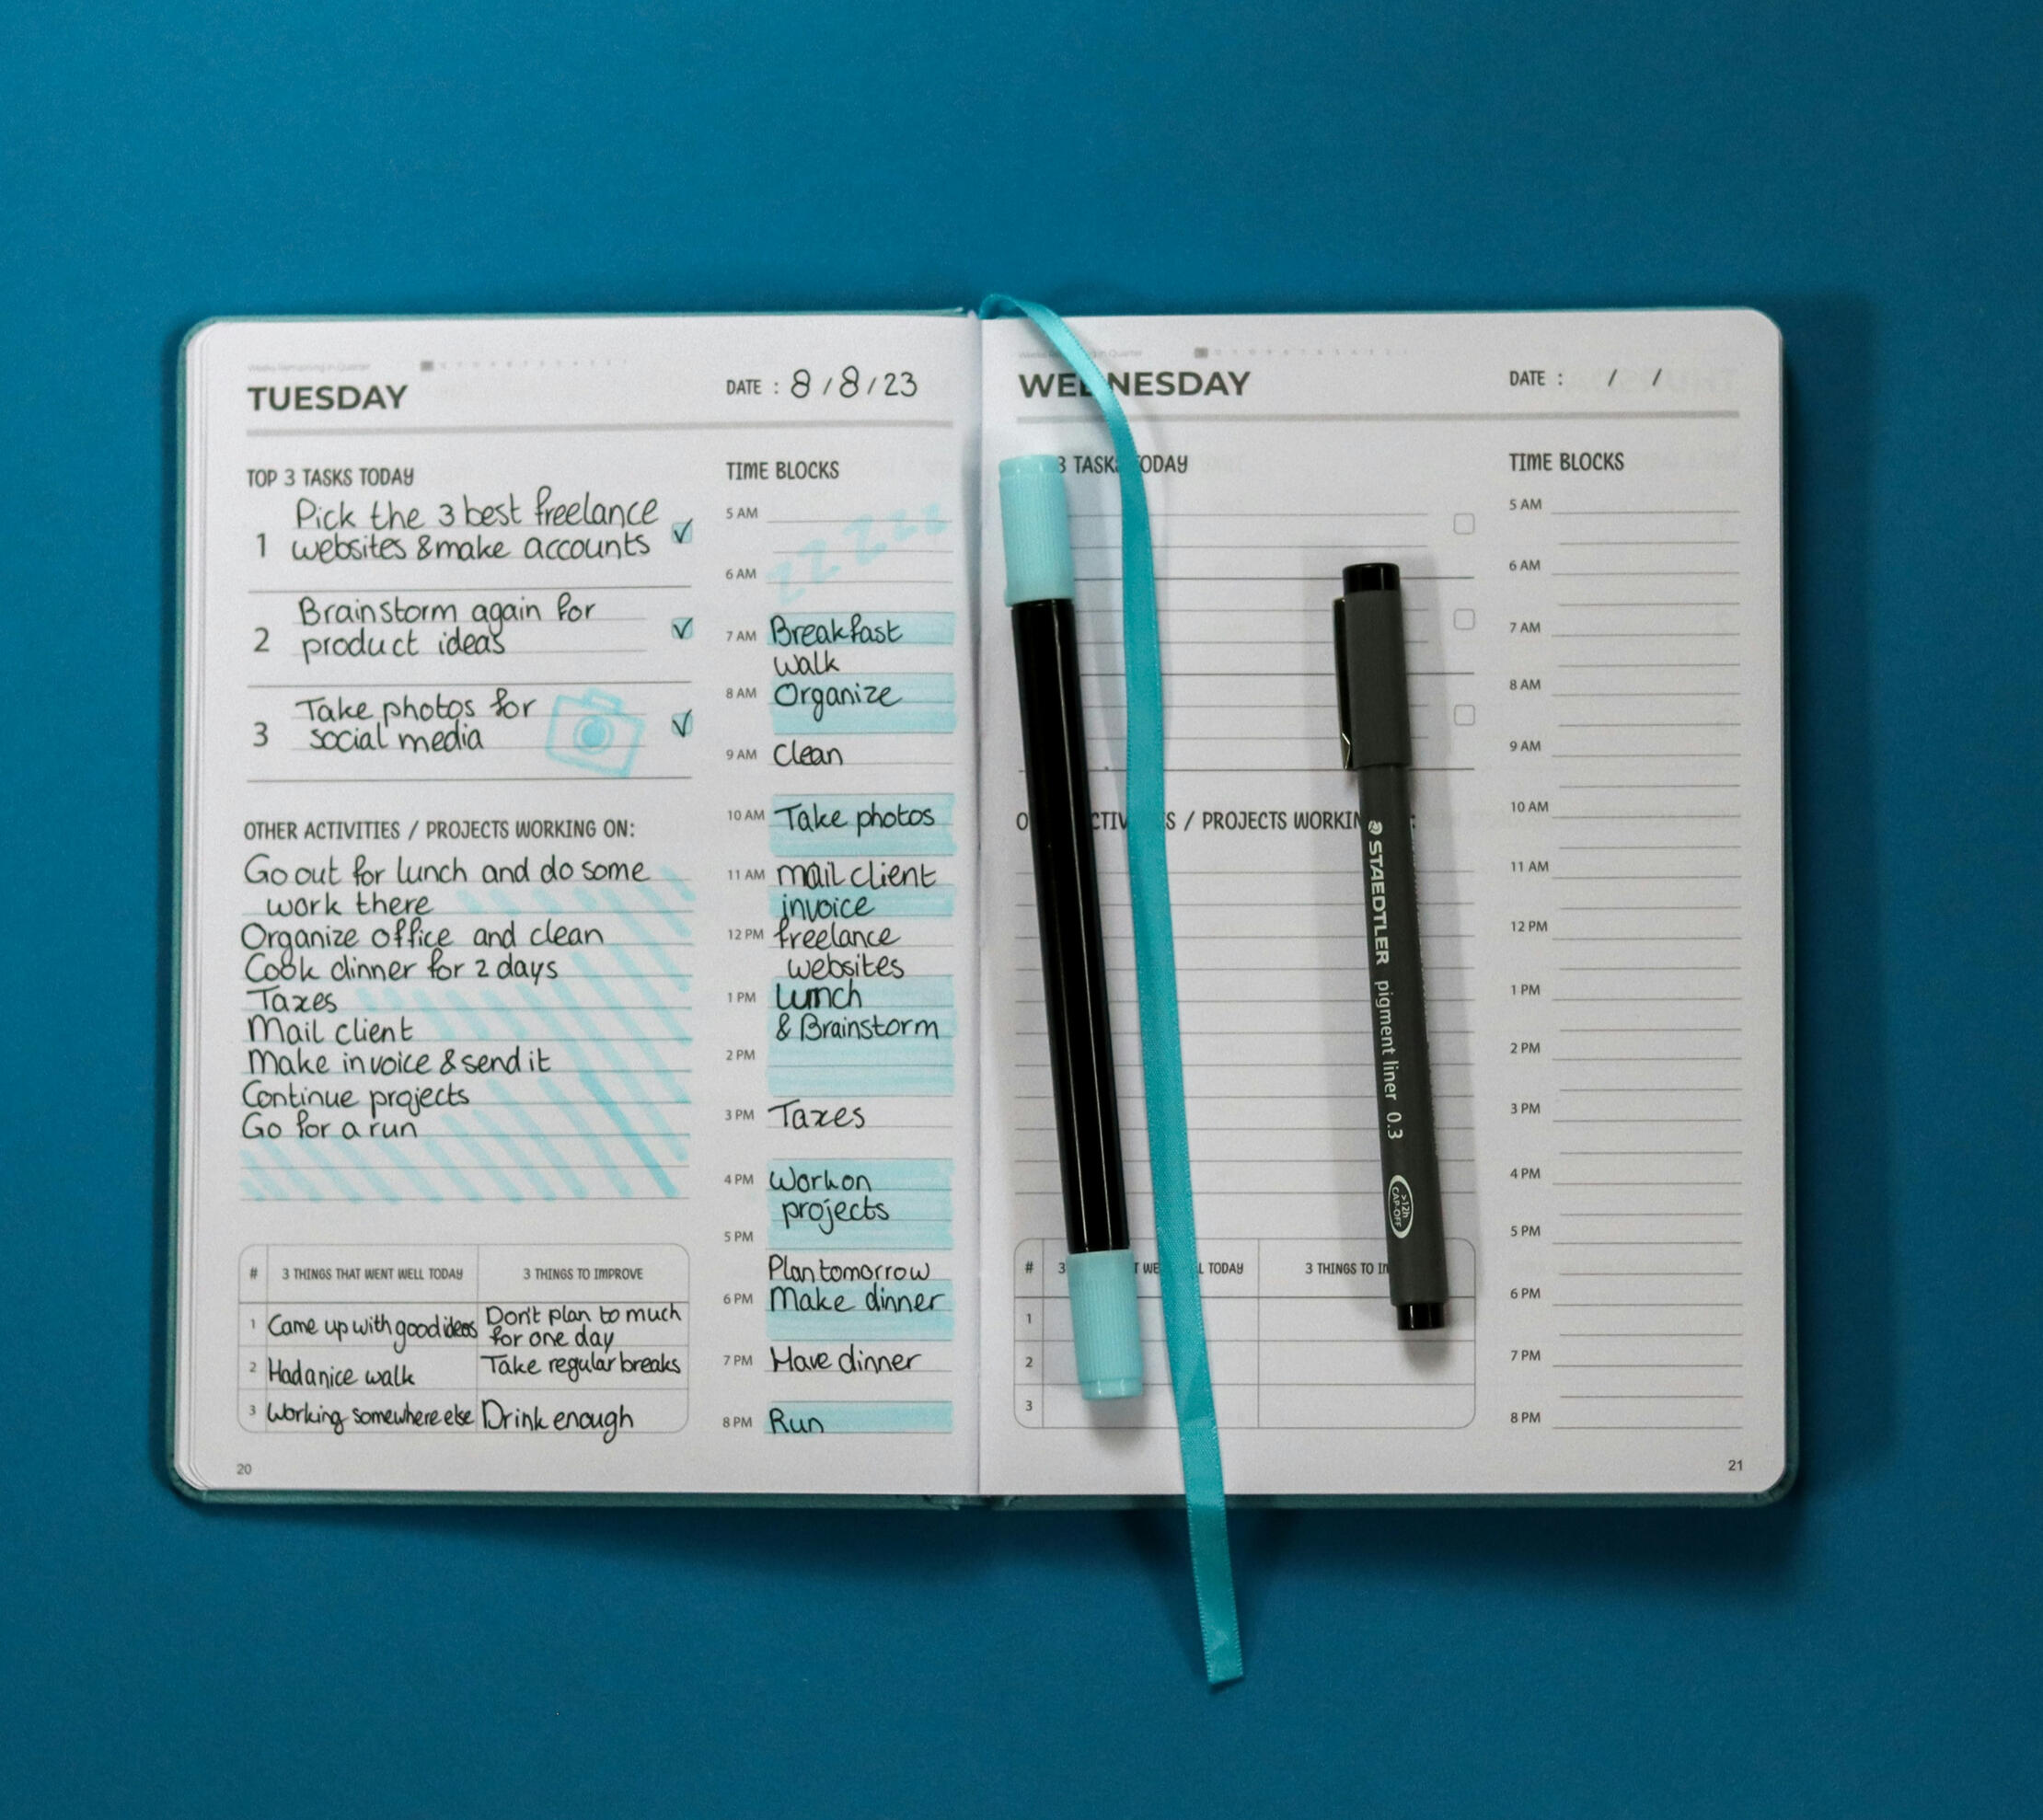 TUESDAY
DATE : 8 / 8 / 23
TOP 3 TASKS TODAY
1 Pick the 3 best freelance
websites & make accounts
2 Brainstorm again for
product ideas
3 Take photos for
social media
OTHER ACTIVITIES / PROJECTS WORKING ON:
Go out for lunch and do some
work there
Organize office and clean
Cook dinner for 2 days
Taxes
Mail client
Make invoice & send it
Continue projects
Go for a run
# 3 THINGS THAT WENT WELL TODAY 3 THINGS TO IMPROVE
1 Came up with good ideas Don't plan to much
for one day
2 Had a nice walk Take regular breaks
3 Working somewhere else Drink enough
20
TIME BLOCKS
5 AM zzzzz
6 AM
7 AM Breakfast
walk
8 AM Organize
9 AM Clean
10 AM Take photos
11 AM mail client
invoice
12 PM freelance
websites
1 PM Lunch
& Brainstorm
2 PM
3 PM Taxes
4 PM Work on
projects
5 PM
Plan tomorrow
6 PM Make dinner
7 PM Have dinner
8 PM Run
WEDNESDAY
DATE : / /
3 TASKS TODAY
/ PROJECTS WORKIN
# 3 TODAY 3 THINGS TO
1
2
3
TIME BLOCKS
5 AM
6 AM
7 AM
8 AM
9 AM
10 AM
11 AM
12 PM
1 PM
2 PM
3 PM
4 PM
5 PM
6 PM
7 PM
8 PM
21
STAEDTLER pigment liner 0.3
>12h
CAP-OFF